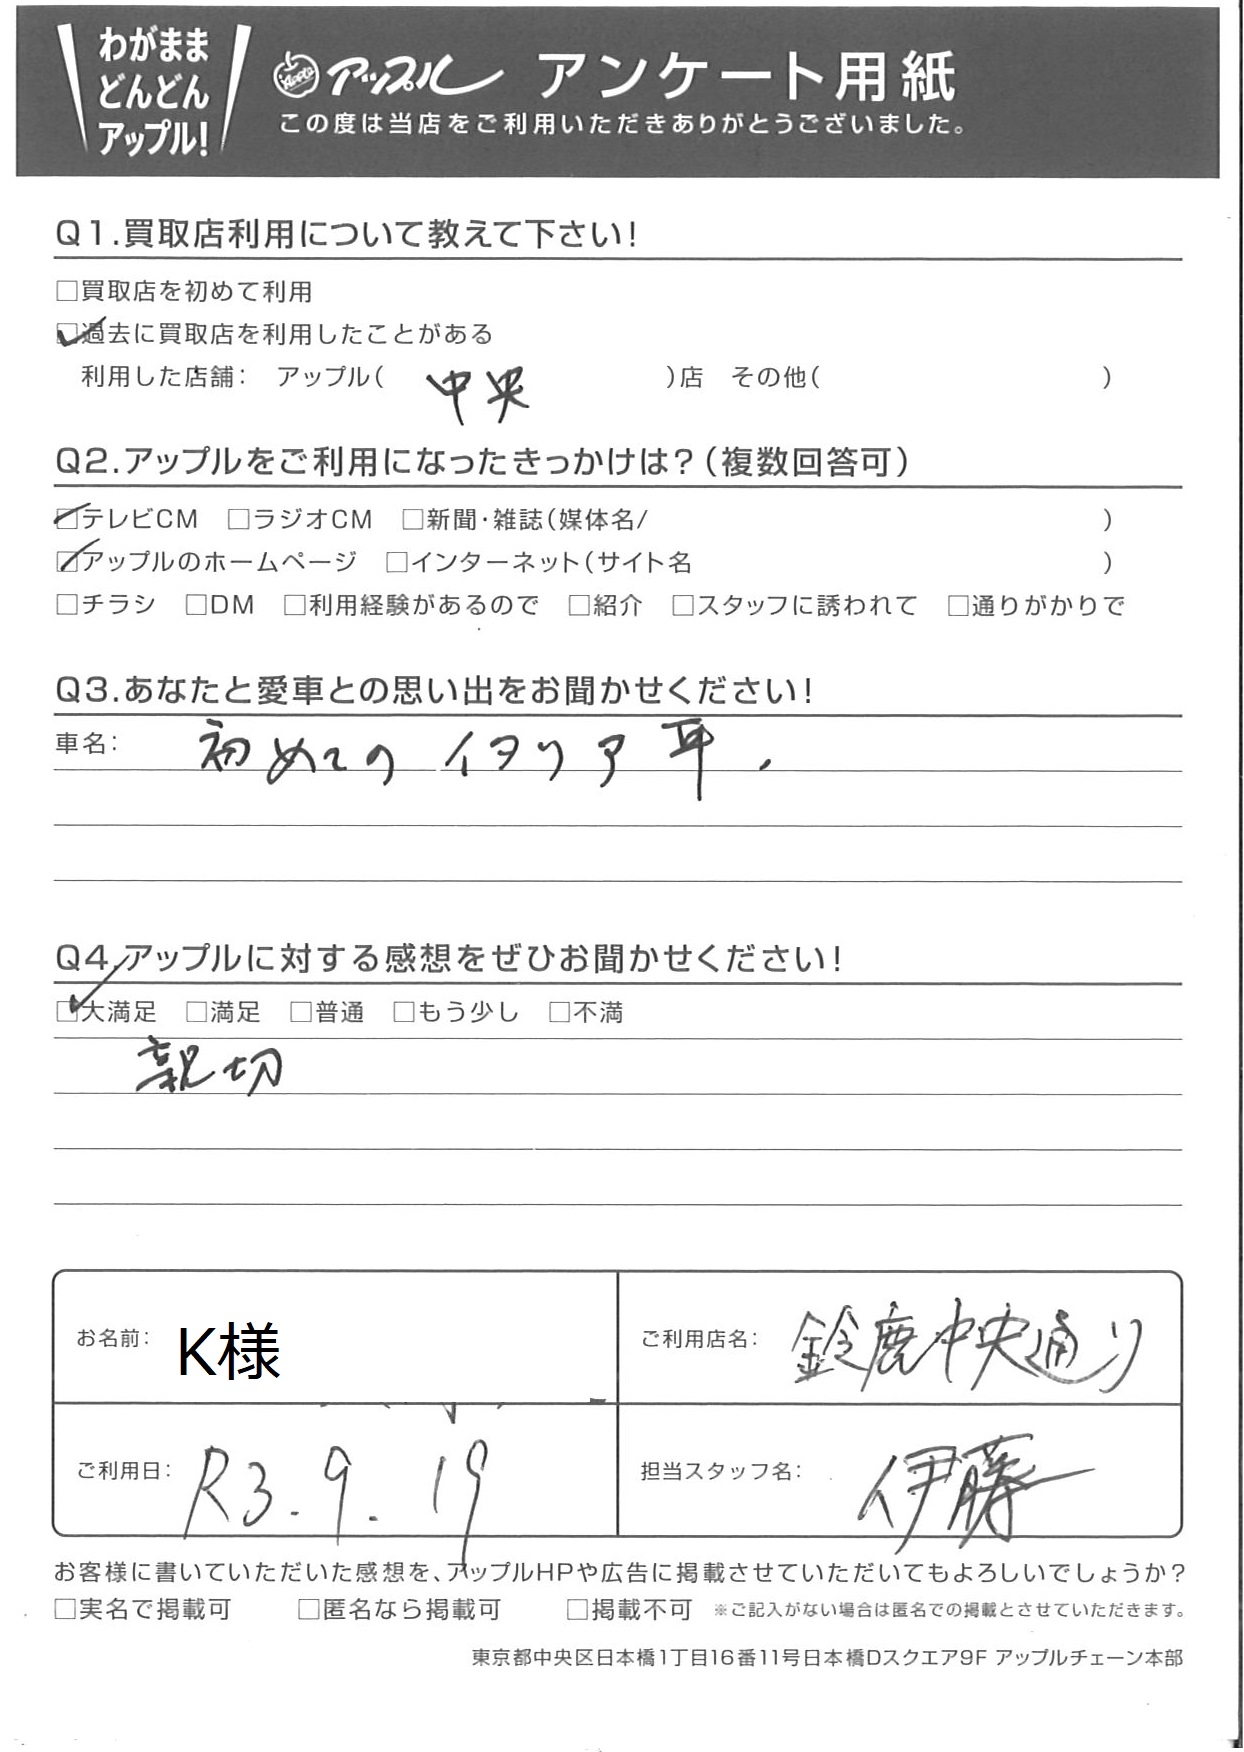 わがまま
どんどん
アップル!
Apple アップル アンケート用紙
この度は当店をご利用いただきありがとうございました。
Q1.買取店利用について教えて下さい!
□買取店を初めて利用
☑過去に買取店を利用したことがある
利用した店舗: アップル( 中央 )店 その他( )
Q2.アップルをご利用になったきっかけは?(複数回答可)
☑テレビCM □ラジオCM □新聞・雑誌(媒体名/ )
☑アップルのホームページ □インターネット(サイト名 )
□チラシ □DM □利用経験があるので □紹介 □スタッフに誘われて □通りがかりで
Q3.あなたと愛車との思い出をお聞かせください!
車名: 初めてのイタリア車.
Q4.アップルに対する感想をぜひお聞かせください!
☑大満足 □満足 □普通 □もう少し □不満
親切
お名前: K様
ご利用店名: 鈴鹿中央通り
ご利用日: R3.9.19
担当スタッフ名: 伊藤
お客様に書いていただいた感想を、アップルHPや広告に掲載させていただいてもよろしいでしょうか?
□実名で掲載可 □匿名なら掲載可 □掲載不可 ※ご記入がない場合は匿名での掲載とさせていただきます。
東京都中央区日本橋1丁目16番11号日本橋Dスクエア9F アップルチェーン本部